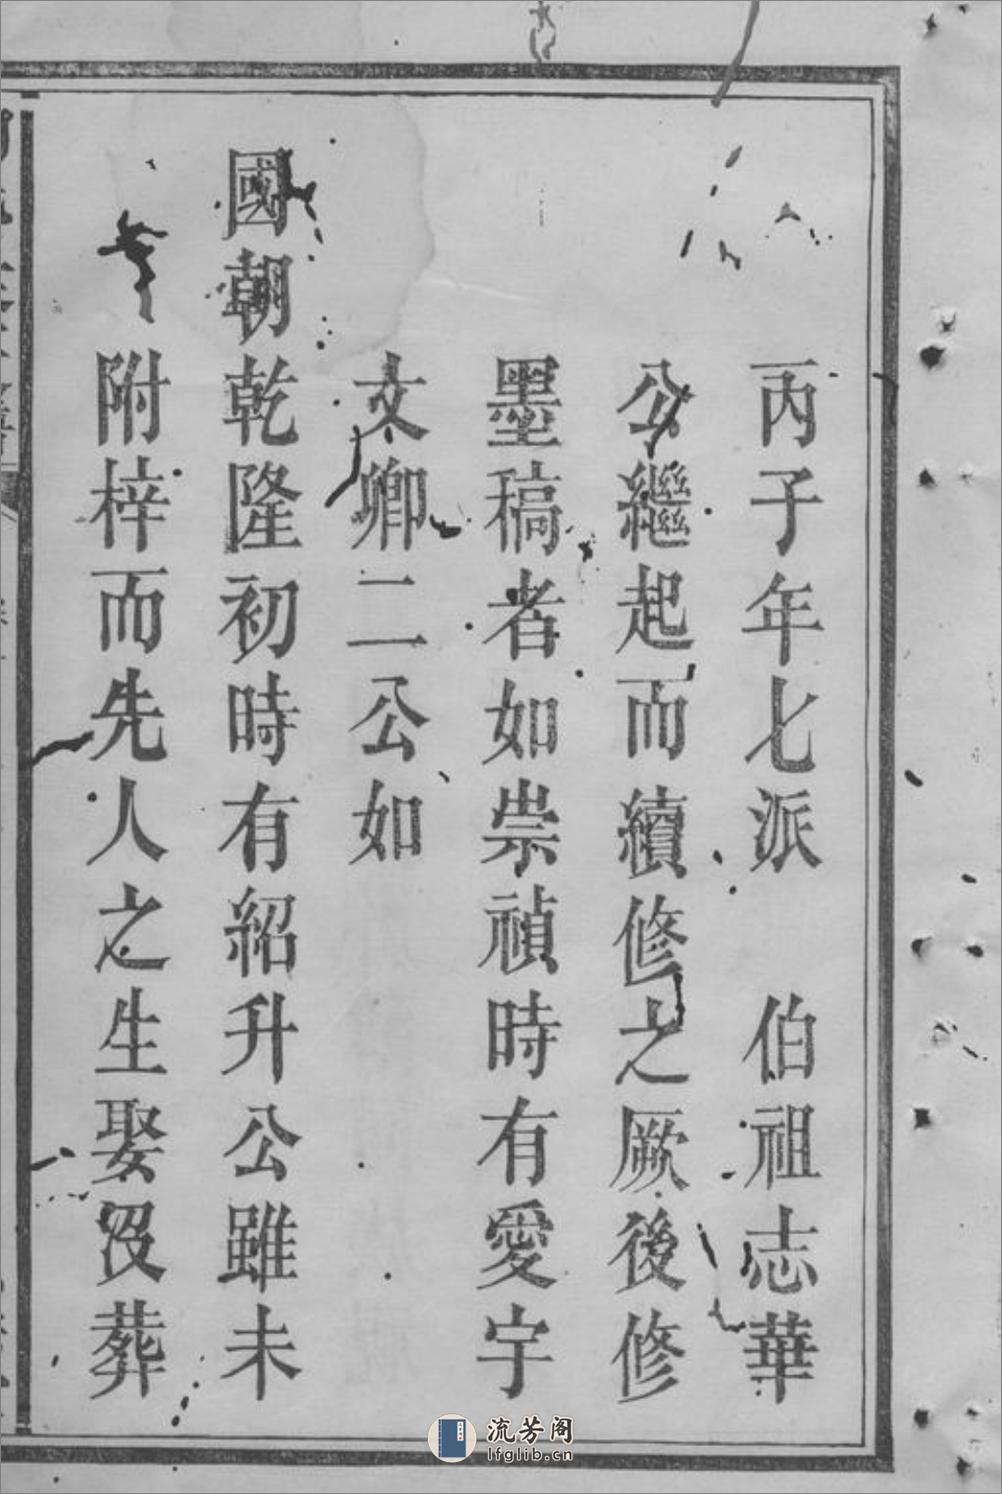 丙子年七派　伯祖志華
公繼起而續修之厥後修
墨稿者如崇禎時有愛宇
文卿二公如
國朝乾隆初時有紹升公雖未
附梓而先人之生娶沒葬
流芳阁
lfglib.cn